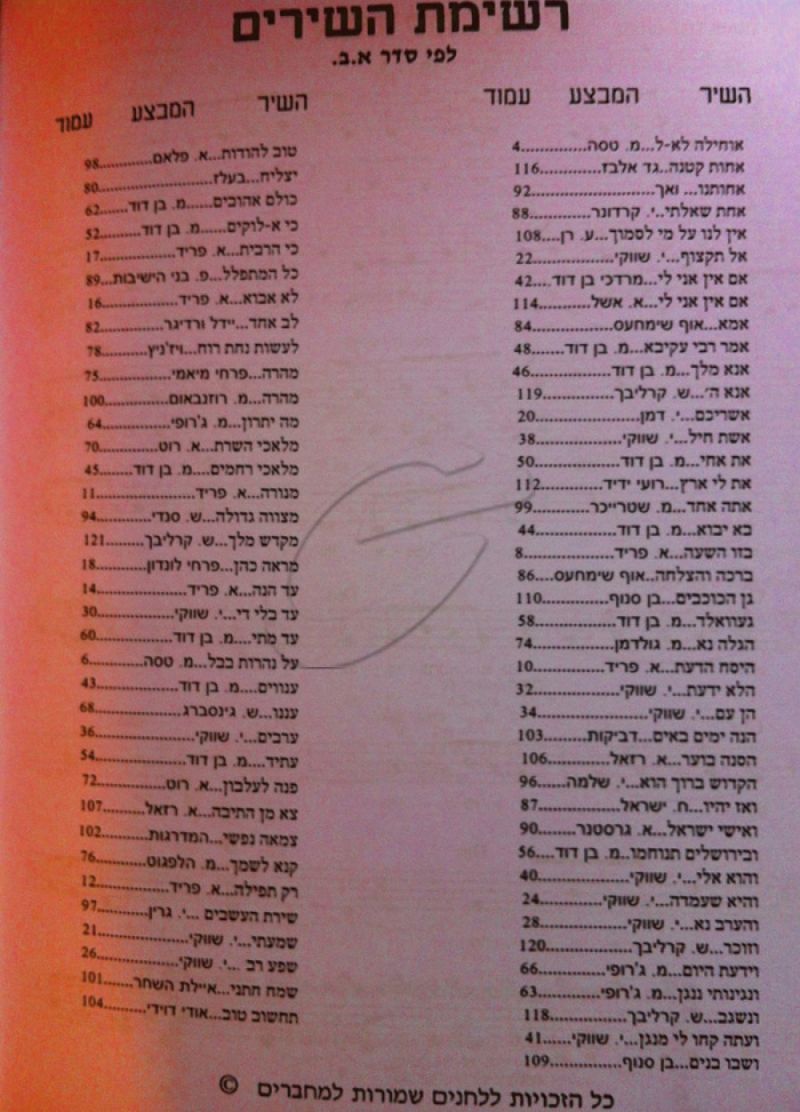 רשימת השירים
לפי סדר א.ב.
השיר המבצע עמוד
אוחילה לא-ל...מ. טסה...............4
אחות קטנה..גד אלבז..............116
אחותנו... ואך............................92
אחת שאלתי..י. קרדונר...........88
אין לנו על מי לסמוך...ע. רן....108
אל תקצוף...י. שווקי................22
אם אין אני לי...מרדכי בן דוד....42
אם אין אני לי...א. אשל...........114
אמא...אוף שימחעס................84
אמר רבי עקיבא...מ. בן דוד.......48
אנא מלך...מ. בן דוד................46
אנא ה'...ש. קרליבך................119
אשריכם...י. דמן.....................20
אשת חיל...י. שווקי................38
את אחי...מ. בן דוד.................50
את לי ארץ...רועי ידיד............112
אתה אחד...מ. שטרייכר..........99
בא יבוא...מ. בן דוד.................44
בזו השעה...א. פריד.................8
ברכה והצלחה..אוף שימחעס....86
גן הכוכבים...בן סנוף..............110
געוואלד...מ. בן דוד................58
הגלה נא...מ. גולדמן...............74
היסח הדעת...א. פריד.............10
הלא ידעת...י. שווקי...............32
הן עם...י. שווקי....................34
הנה ימים באים...דביקות.........103
הסנה בוער...א. רזאל..............106
הקדוש ברוך הוא...י. שלמה......96
ואז יהיו...ח. ישראל................87
ואישי ישראל...א. גרסטנר........90
ובירושלים תנוחמו..מ. בן דוד....56
והוא אלי...י. שווקי................40
והיא שעמדה...י. שווקי...........24
והערב נא...י. שווקי...............28
וזוכר...ש. קרליבך.................120
וידעת היום...מ. ג'רופי............66
ונגינותי ננגן...מ. ג'רופי...........63
ונשגב...ש. קרליבך................118
ועתה קחו לי מנגן...י. שווקי......41
ושבו בנים...בן סנוף...............109
השיר המבצע עמוד
טוב להודות...א. פלאם............98
יצליח...בעלז..........................80
כולם אהובים......מ. בן דוד......62
כי א-לוקים......מ. בן דוד.........52
כי הרבית...א. פריד.................17
כל המתפלל...פ. בני הישיבות...89
לא אבוא...א. פריד..................16
לב אחד...יידל ורדיגר..............82
לעשות נחת רוח...ויז'ניץ..........78
מהרה...פרחי מיאמי................75
מהרה...מ. רוזנבאום...............100
מה יתרון...מ. ג'רופי...............64
מלאכי השרת...א. רוט.............70
מלאכי רחמים....מ. בן דוד.......45
מנורה...א. פריד.....................11
מצווה גדולה...ש. סנדי............94
מקדש מלך...ש. קרליבך..........121
מראה כהן...פרחי לונדון..........18
עד הנה...א. פריד...................14
עד בלי די...י. שווקי................30
עד מתי....מ. בן דוד................60
על נהרות בבל...מ. טסה..........6
ענווים....מ. בן דוד..................43
עננו...ש. גינסברג...................68
ערבים...י. שווקי....................36
עתיד....מ. בן דוד...................54
פנה לעלבון...א. רוט................72
צא מן התיבה...א. רזאל...........107
צמאה נפשי...המדרגות...........102
קנא לשמך...מ. הלפגוט...........76
רק תפילה...א. פריד................12
שירת העשבים ...י. גרין...........97
שמעתי...י. שווקי...................21
שפע רב ...י. שווקי.................26
שמח חתני...איילת השחר........101
תחשוב טוב...אודי דוידי...........104
כל הזכויות ללחנים שמורות למחברים ©